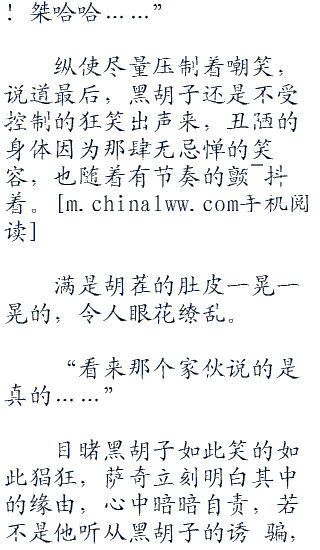 ！桀哈哈……”
纵使尽量压制着嘲笑，
说道最后，黑胡子还是不受
控制的狂笑出声来，丑陋的
身体因为那肆无忌惮的笑
容，也随着有节奏的颤¯抖
着。[m.china1ww.com手机阅
读]
满是胡茬的肚皮一晃一
晃的，令人眼花缭乱。
“看来那个家伙说的是
真的……”
目睹黑胡子如此笑的如
此猖狂，萨奇立刻明白其中
的缘由，心中暗暗自责，若
不是他听从黑胡子的诱 骗，